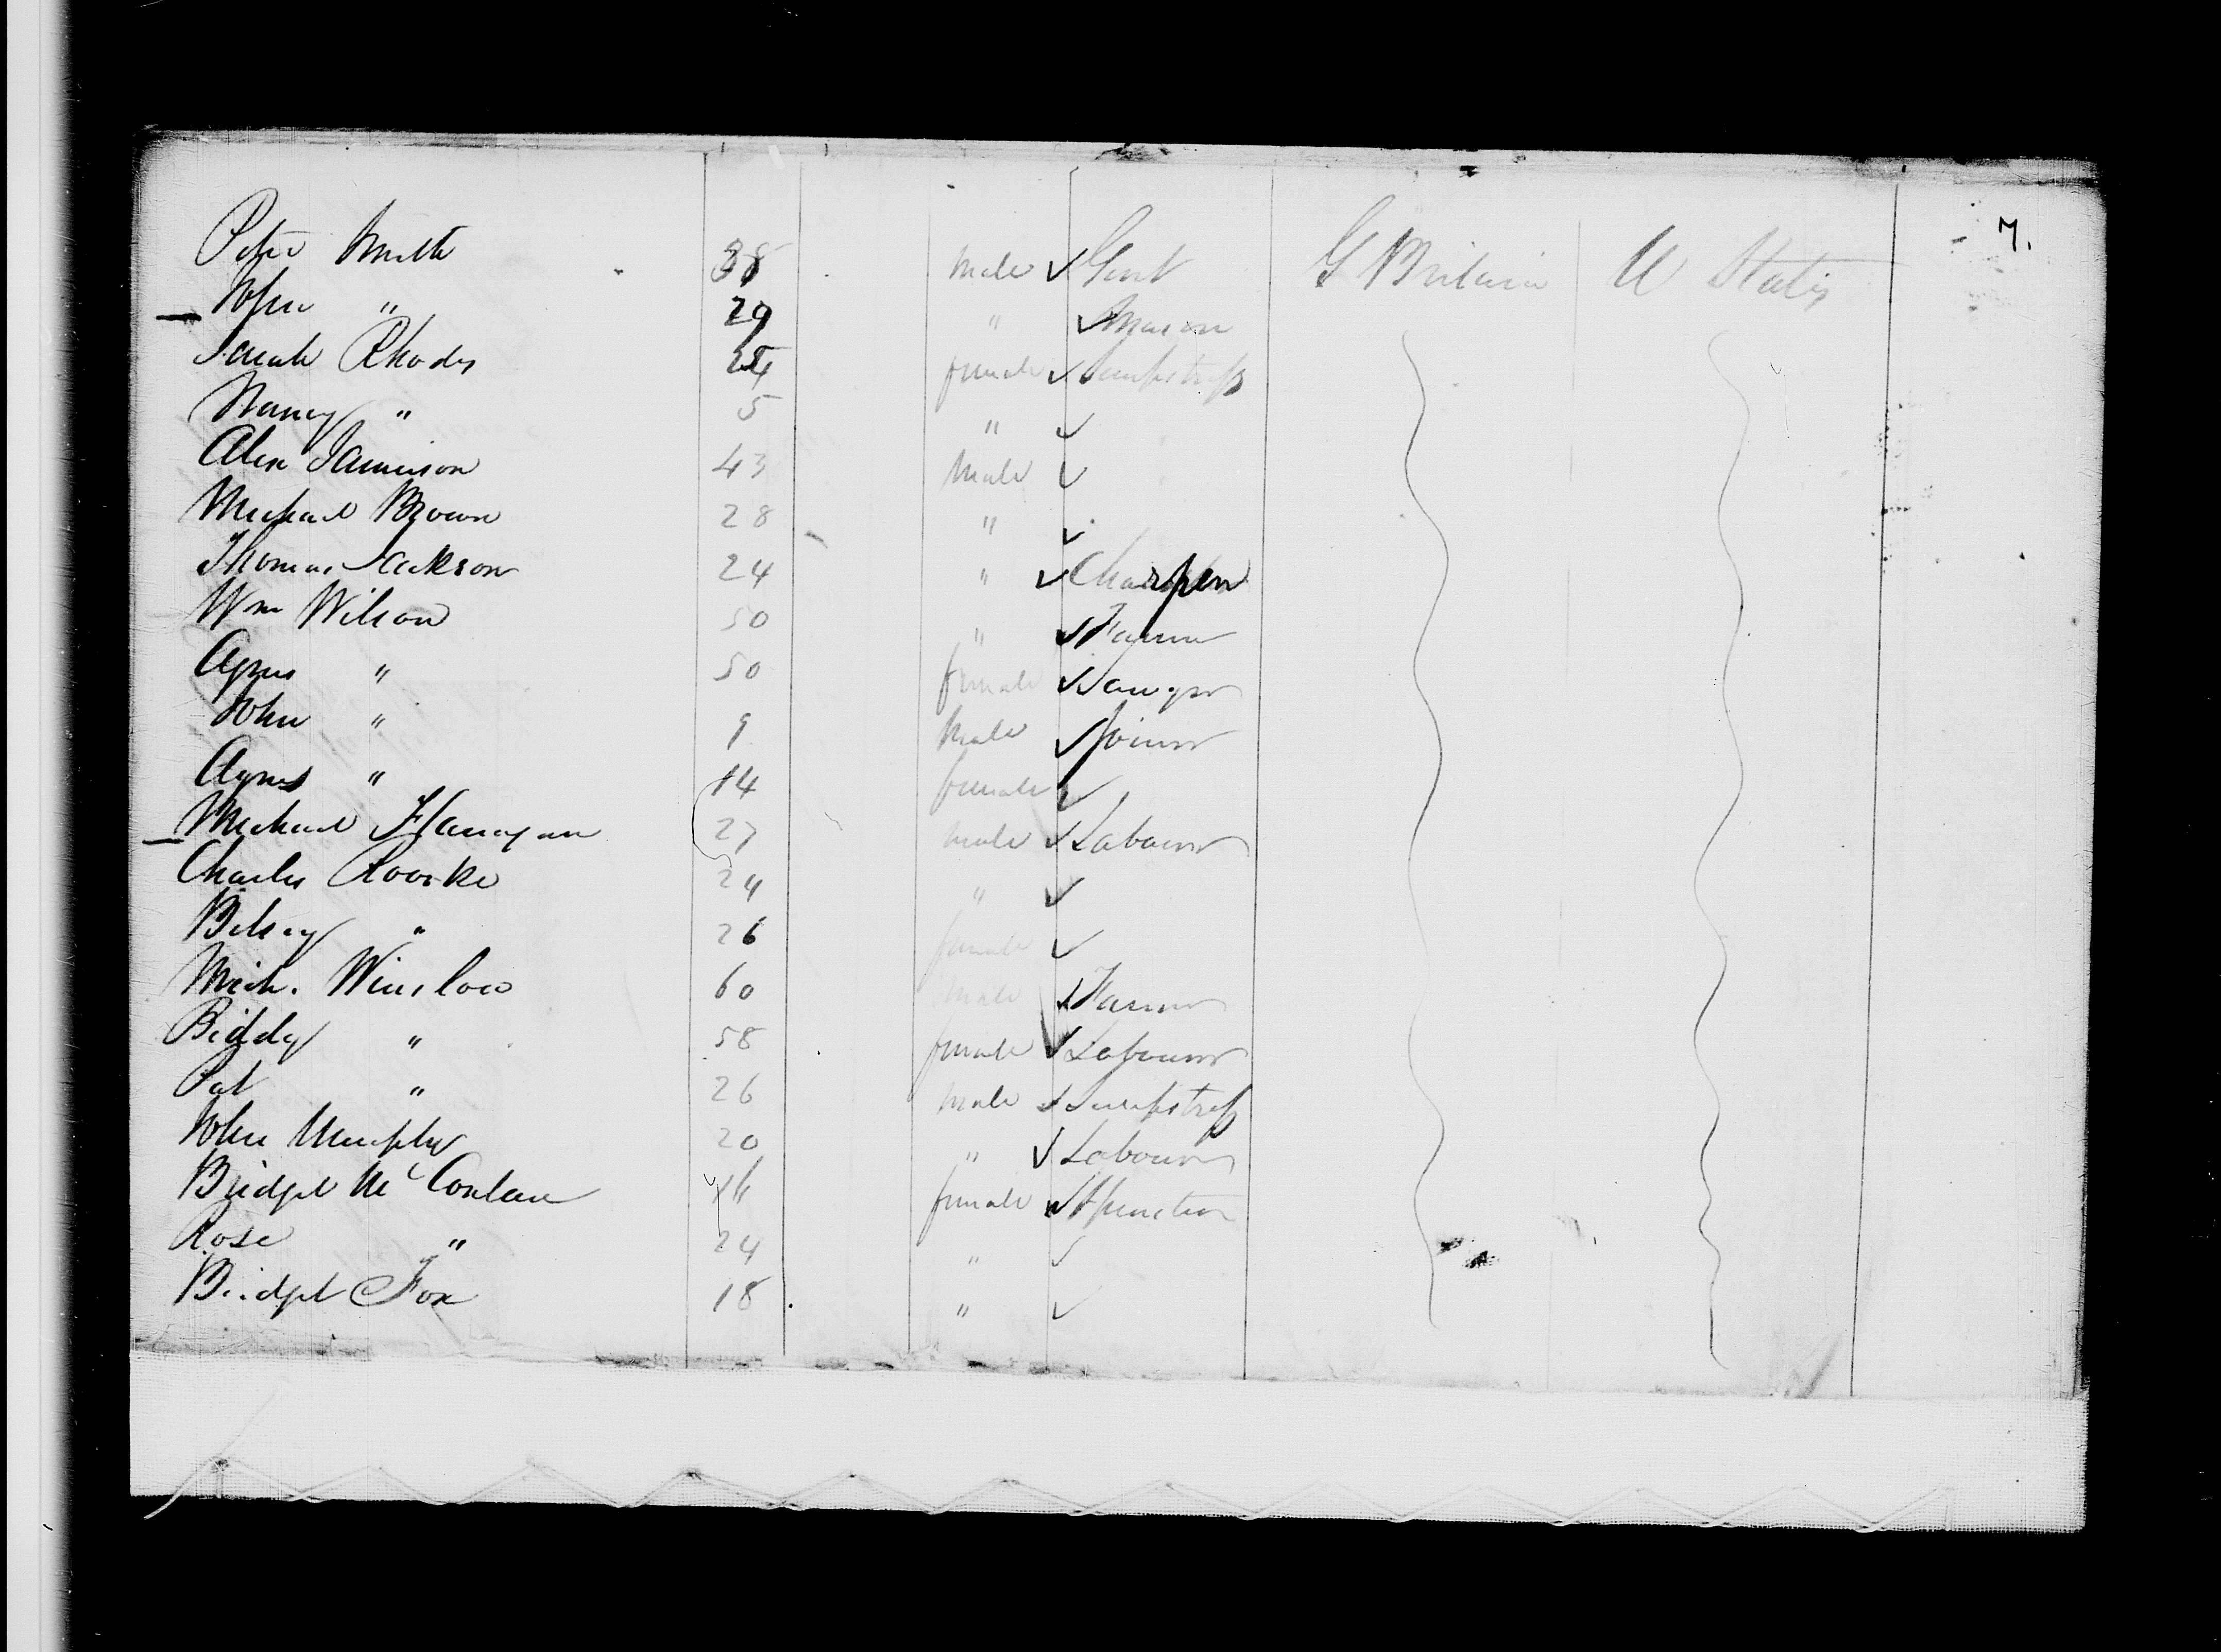 7.
Peter Smith 38 male Gent G Britain U States
John " 29 " Mason
Sarah Rhodes 24 female Sempstress
Nancy " 5 "
Alex Jamieson 43 male
Michael Brown 28 "
Thomas Jackson 24 "
Wm Wilson 50 " Farmer
Agnes " 50 female Sawyer
John " 9 male Joiner
Agnes " 14 female
Michael Flanagan 27 male Labourer
Charles Roorke 24 "
Betsey " 26 female
Mich. Winslow 60 male Farmer
Biddy " 58 female Labourer
Pat " 26 male Sempstress
John Murphy 20 " Labourer
Bridget Mc Conlan female Spinster
Rose " 24 "
Bridget Fox 18 "